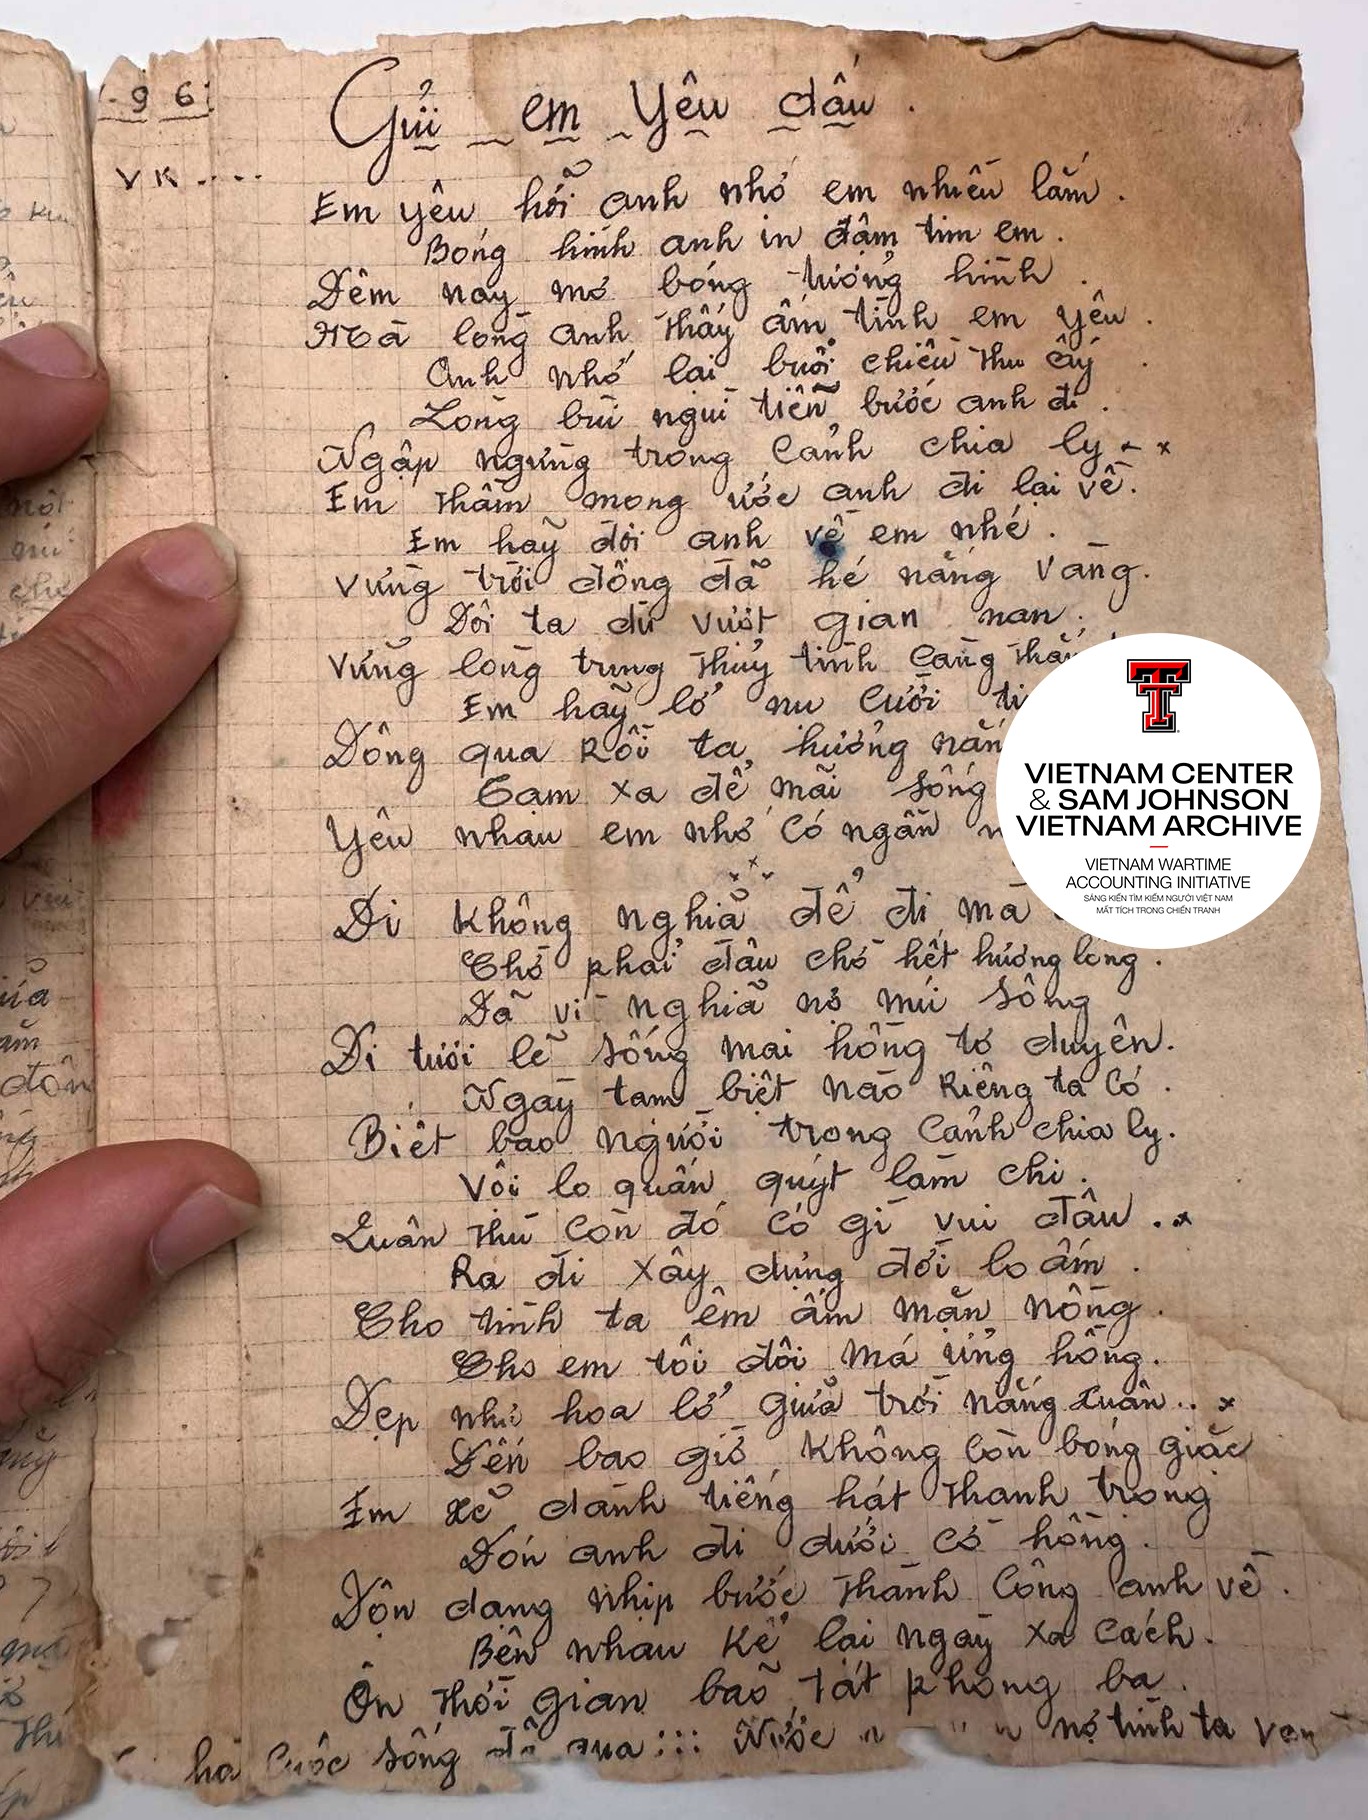 -96
Gửi em yêu dấu.
VK....
Em yêu hỡi anh nhớ em nhiều lắm.
Bóng hình anh in đậm tim em.
Đêm nay mơ bóng tưởng hình.
Mà lòng anh thấy ấm tình em yêu.
Anh nhớ lại buổi chiều thu ấy
Lòng bùi ngùi tiễn bước anh đi.
Ngập ngừng trong cảnh chia ly - x
Em thầm mong ước anh đi lại về.
Em hãy đợi anh về em nhé.
Vừng trời đông đã hé nắng vàng.
Đôi ta dù vượt gian nan.
Vững lòng trung thủy tình càng
Em hãy lở nụ cười
Đông qua rồi ta, hưởng
Tạm xa để mãi sống
Yêu nhau em nhớ có ngần
Đi không nghĩa để đi mà
Chớ phải đâu chớ hết hương lòng.
Đã vì nghĩa nọ múi sông
Đi tưới lẽ sống mai hồng tơ duyên.
Ngày tạm biệt nào riêng ta có.
Biết bao người trong cảnh chia ly.
Vội lo quấn quýt làm chi.
Quân thù còn đó có gì vui đâu..x
Ra đi xây dựng đời lo ấm.
Cho tình ta êm ấm mặn nồng.
Cho em tôi đôi má ửng hồng.
Đẹp như hoa lở giữa trời nắng xuân.. x
Đến bao giờ không còn bóng giặc
Em xẽ dành tiếng hát thanh trong
Đón anh đi dưới cờ hồng.
Dộn dạng nhịp bước thành công anh về.
Bên nhau kể lại ngày xa cách.
Ôn thời gian bão táp phong ba.
hà cuộc sống đã qua::: Nước nợ tình ta vẹn
VIETNAM CENTER
& SAM JOHNSON
VIETNAM ARCHIVE
VIETNAM WARTIME
ACCOUNTING INITIATIVE
SÁNG KIẾN TÌM KIẾM NGƯỜI VIỆT NAM
MẤT TÍCH TRONG CHIẾN TRANH